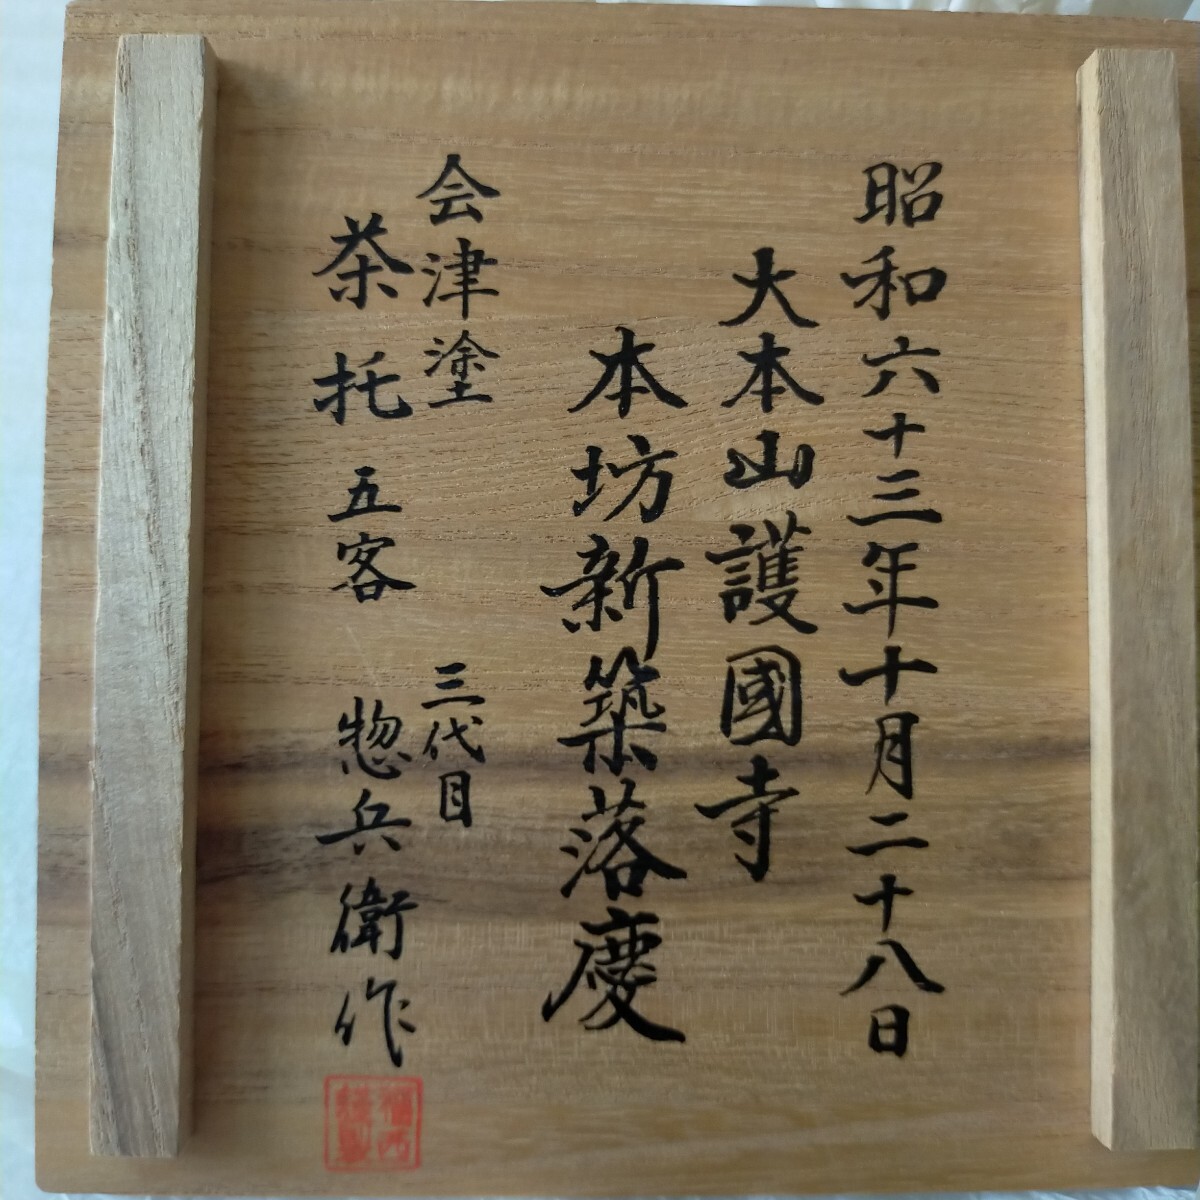 昭和六十三年十月二十八日
大本山護國寺
本坊新築落慶
会津塗
茶托五客
三代目
惣兵衛作